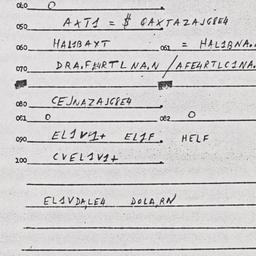 040 O
050 AXT1 = $ 6AXTAZAJG8E4
060 HAL1BAYT 061 = HAL1BNA.
070 DRA.FH4RTL NA.N / AFE4RTLC1NA.
080 CEJNAZAJG8E4
081 O 082 O
090 EL1V1+ EL1F. HELF
100 CVEL1V1+
EL1VDA,LE4 DOLA,RN